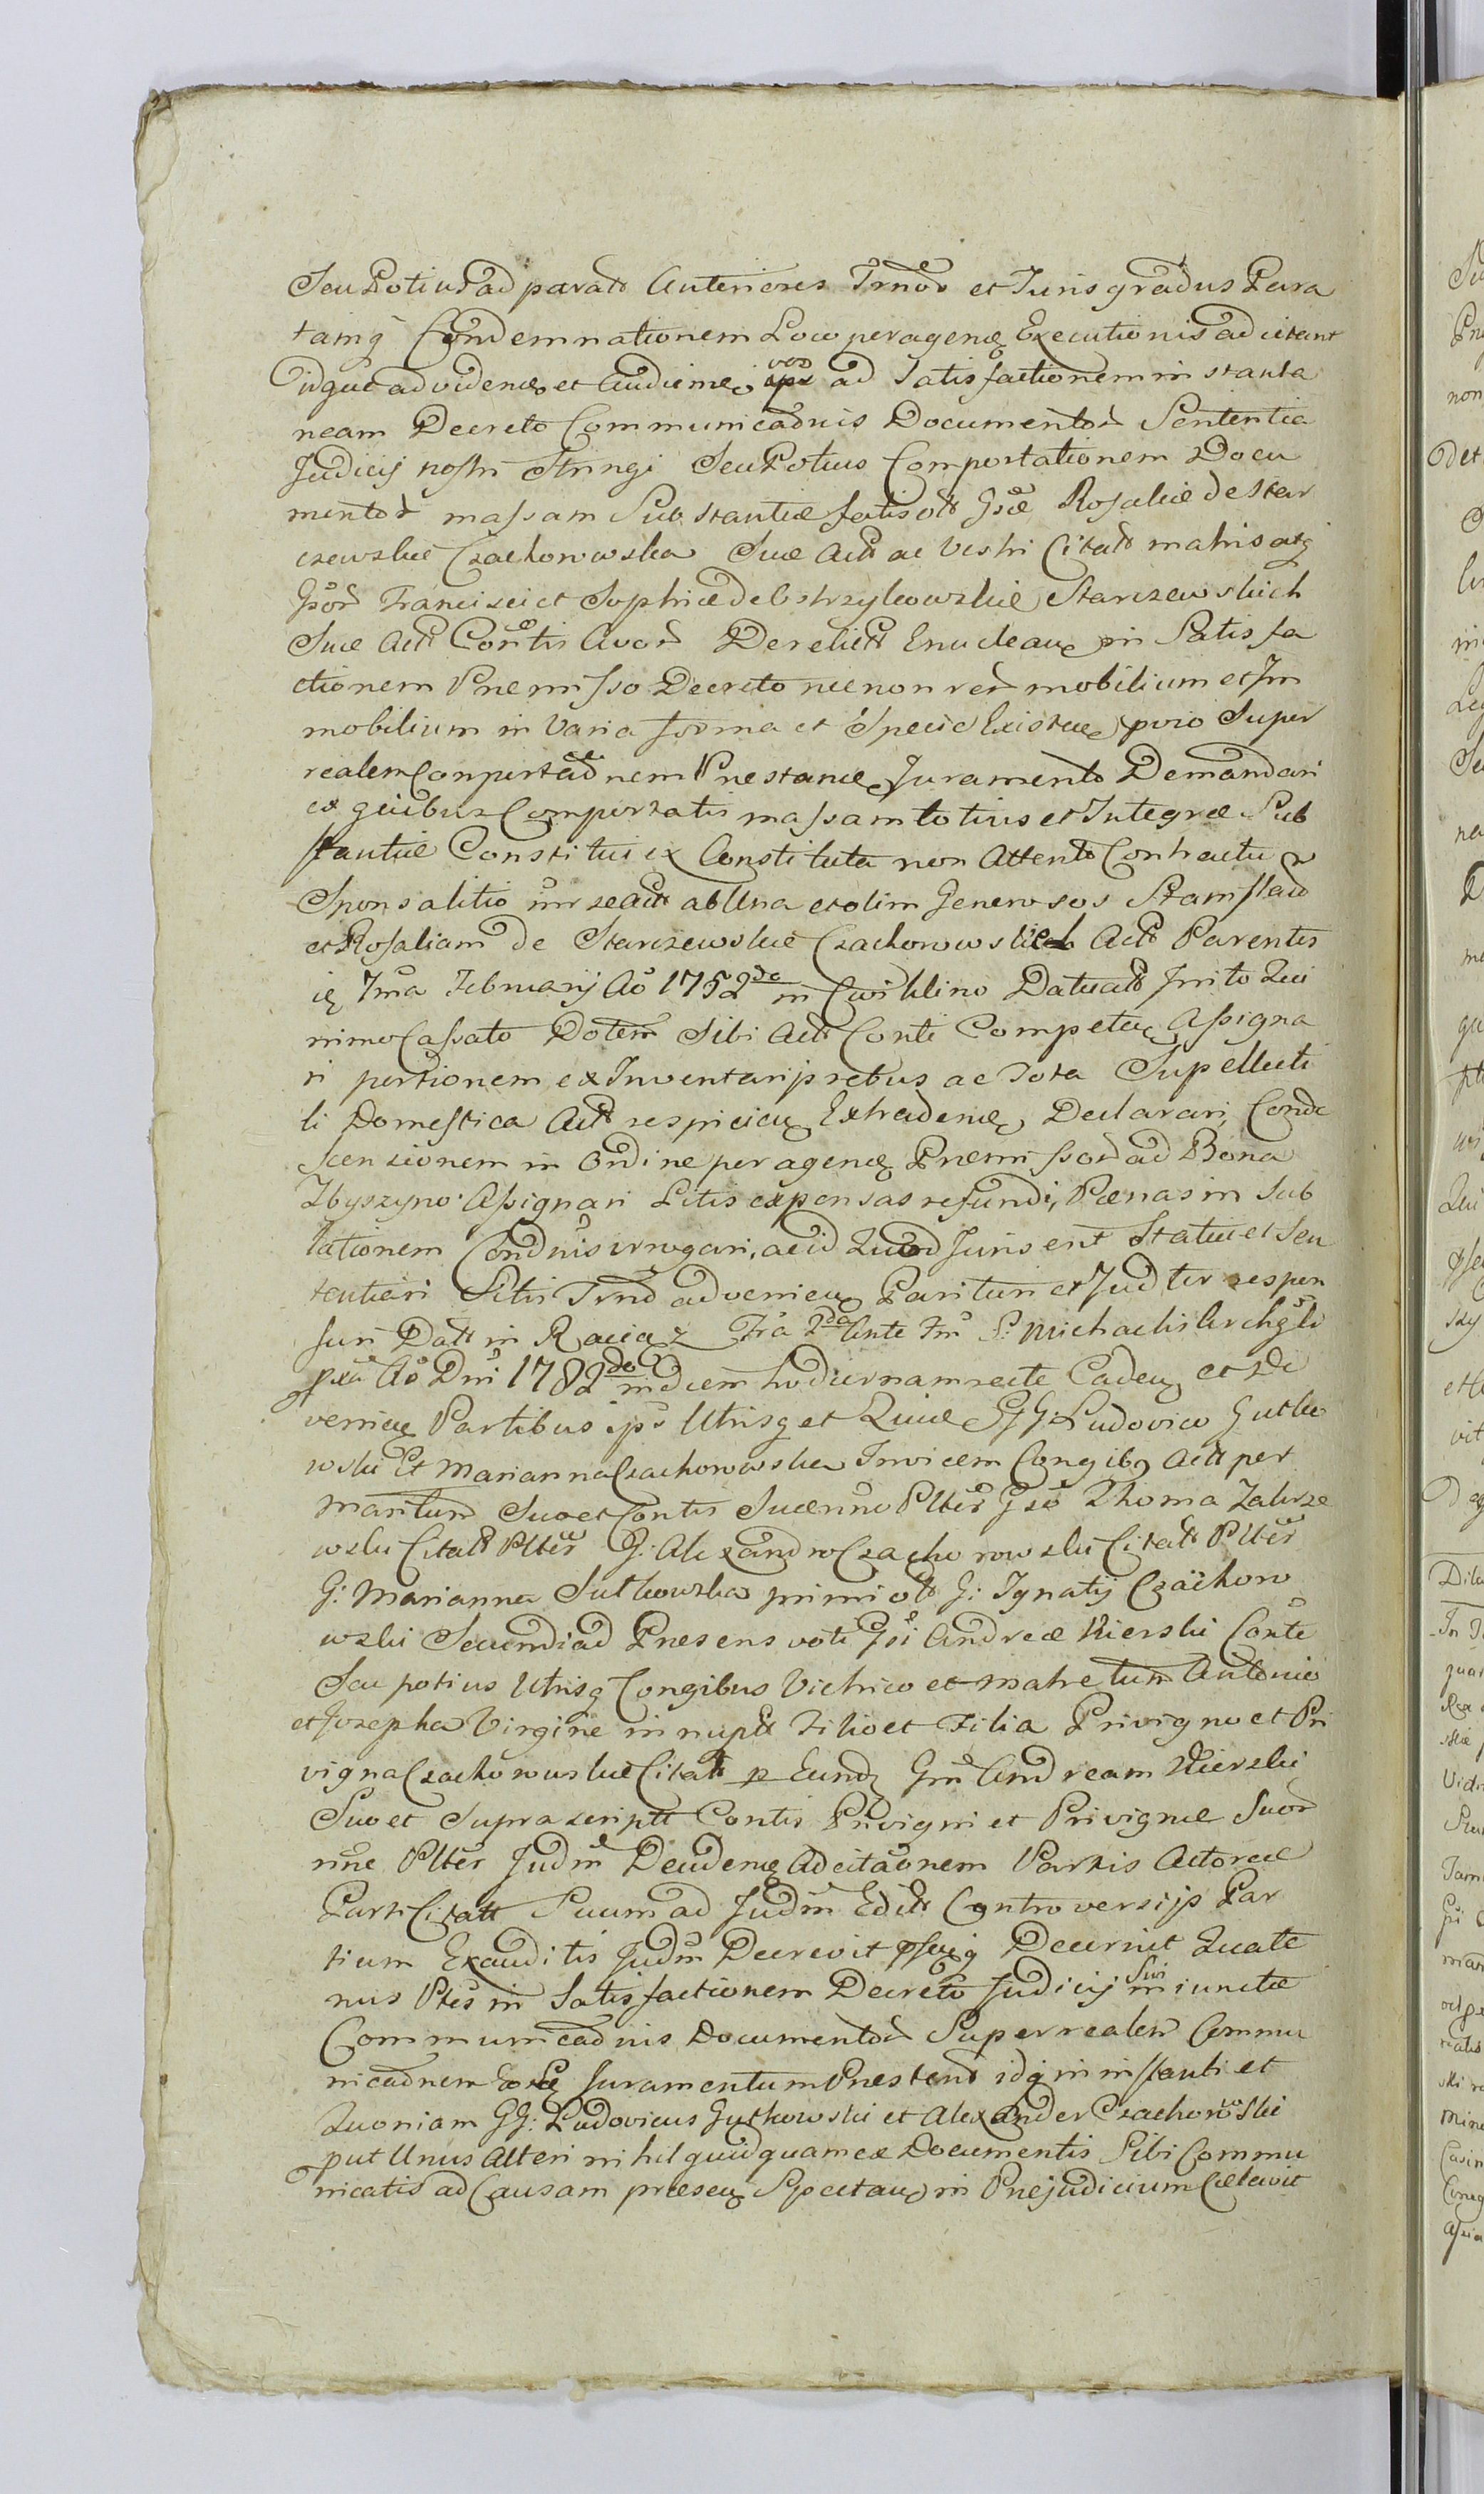 Seu Potius ad paratt Anteriores Trnōr et Juris gradus Para
tamq̃ Condemnationem Loco peragenę Executionis ad citant
idque ad videnę et Audienę vos ad Satisfactionem instanta
neam Decreto Communicaōnis Documentor Sententia
Judicij nostri Stringi Seu Potius Comportationem Docu
mentor massam Substantiæ fatis olt Gsæ Rosaliæ de Star
czewskie Czachowska Suæ Actt ac Vestri Citatt matris atq̃
Gsōr Francisci et Sophiæ de Ostrzykowskie Starczewskich
Suæ Actt Contis Avor Derelictt Enucleanę in Satisfa
ctionem Præmisso Decreto nec non rer mobilium et Im
mobilium in Varia forma et Specie Existenę pvio Super
realem Comportaōnem Præstanę Juramento Demandari
ex quibus Comportatis massam totius et Integræ Sub
stantiæ Constitui ex Constituta non Attento Contractu
Sponsalitio int Una et olim Generosos Stanislaū
et Rosaliam de Starczewskie Czachorowskich Actt Parentes
7ma Februarij Aō 1752do in Cwiklino Datuatt Irrito Qui
nimo Cassato Dotem Sibi Actt Conti Competeñ Assigna
ri portionem ex Inventarijs rebus ac Tota Supellecti
li Domestica Actt respicieñ Extradenę Declarari, Conde
scensionem in Ordine peragenę Præmissor ad Bona
Zbyszyno Assignari Litis expensas refundi, Pænas in Sub
lationem Condnis irrogari, ac id Quod Juris erit Statui et Sen
tentiari Sitis Trnō advenieñ Parituri et Judter respon
suri Datt in Raciąz Fra 2da Ante Fm S. Michaelis Archgli
pxā Aō Dni 1782do in diem hodiernam recte Cadeñ et De
venieñ Partibus ips Utrisq̃ et Quæ GG: Ludovico Gutko
wski Et Marianna Czachorowska Invicem Congibȝ Actt per
Maritum Suo et Contis Suæ nno Plter Gsō Thoma Zakrze
wski Citatt Plter G: Alexandro Czachorowski Citatt Plter
G: Marianna Sutkowska primi olt G: Ignatij Czachoro
wski Secundi ad Præsens voti Gsi Andreæ Kierski Conte
Seu potius Utrisq̃ Congibus Vitrico et Matre tum Antonio
et Josepha Virgine innuptt Filio et Filia Privigno et Pri
vigna Czachorowskie Citatt p Eund Gm Andream Kierski
Suo et Suprascriptt Contis Privigni et Privignæ Suor
nne Plter Judm Deudenę Ad citaōnem Partis Actoreæ
Parti Citatt Suum ad Judm Editt Controversijs Par
tium Exauditis Judm Decrevit Decernit Quate
nus Ptes in Satisfactionem Decreto Judicij Sui iniunctæ
Communicaōnis Documentor Super realem Commu
nicaōnem Juramentum Præstent idq̃ in instanti et
Quoniam GG: Ludovicus Gutkowski et Alexander Czachorowski
put Unus Alteri nihil quidquam ex Documentis Sibi Commu
nicatis ad Causam præseñ Spectanę in Præjudicium Cælavit